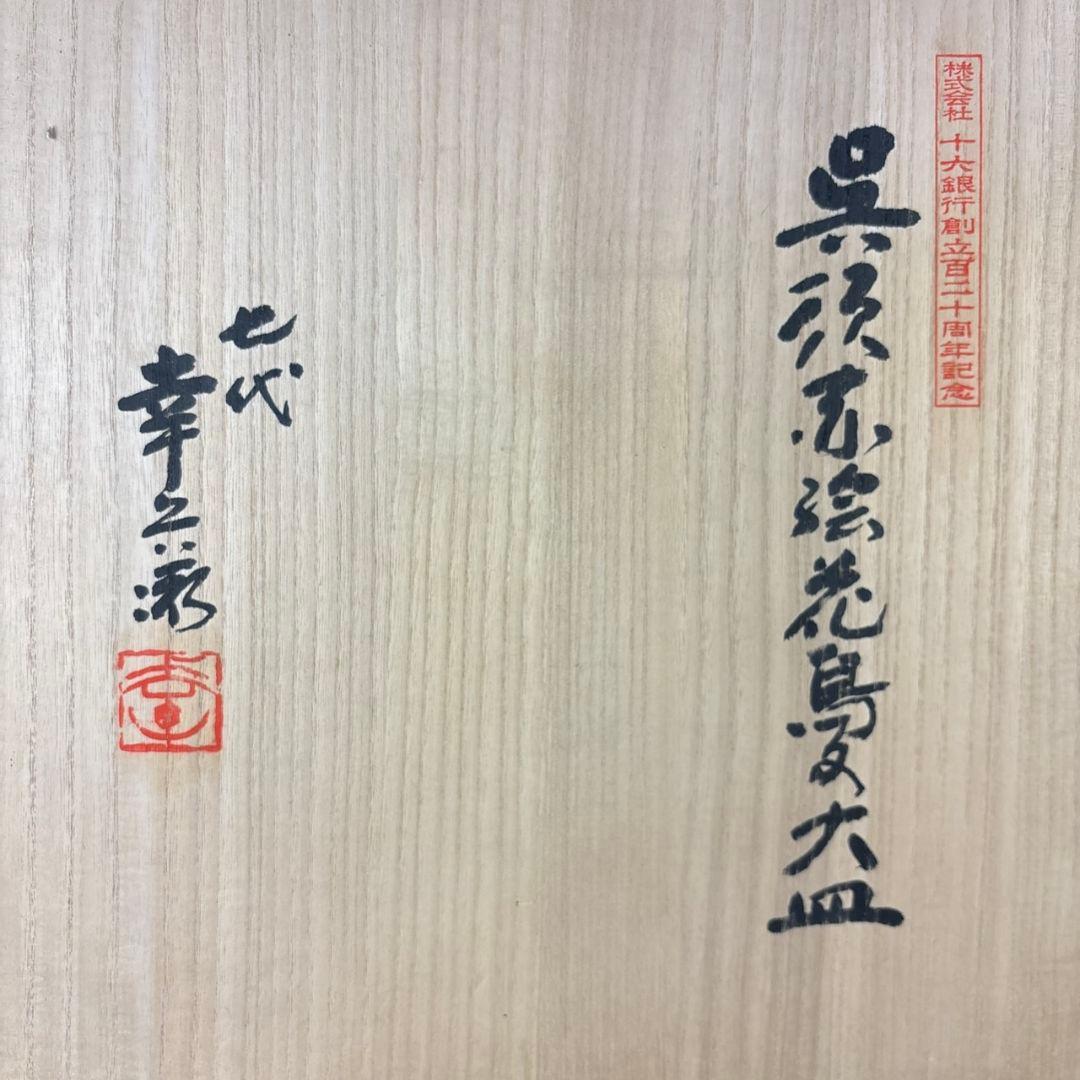 株式会社 十六銀行創立百二十周年記念
呉須赤絵花鳥文大皿
七代
幸兵衛